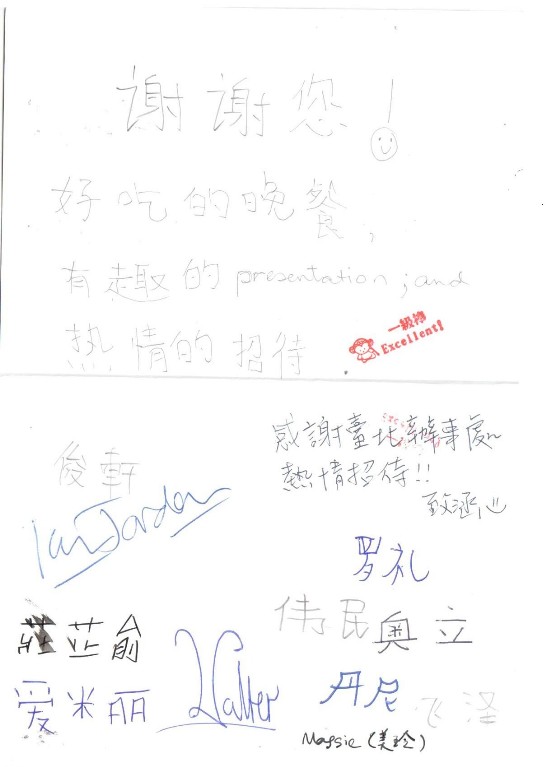 谢谢您!
好吃的晚餐,
有趣的presentation, and
热情的招待
一級棒
Excellent!
感謝臺北辦事處
熱情招待!!
俊軒
Ian Jordan
罗礼
伟民
奥立
莊芷俞
Walter
爱米丽
丹尼
飞泽
Maggie (美玲)